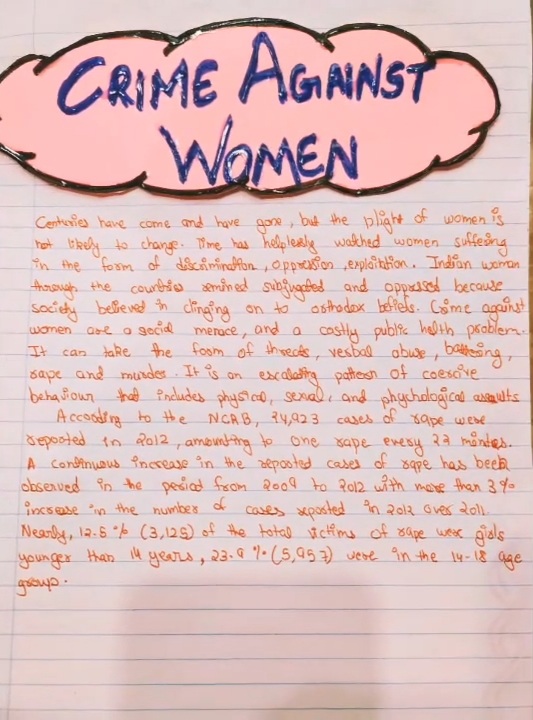 CRIME AGAINST
WOMEN
Centuries have come and have gone, but the plight of women is
not likely to change. Time has helplessly watched women suffering
in the form of discrimination, oppression, exploitation. Indian woman
through the countries remined subjugated and oppressed because
society believed in clinging on to orthodox beliefs. Crime against
women are a social menace, and a costly public helth problem.
It can take the form of threats, verbal abuse, battering,
rape and murder. It is an escalating pattern of coercive
behaviour that includes physical, sexual, and phychological assaults
According to the NCRB, 24,923 cases of rape were
reported in 2012, amounting to one rape every 22 minutes.
A continuous increase in the reported cases of rape has been
observed in the period from 2009 to 2012 with more than 3%
increase in the number of cases reported in 2012 over 2011.
Nearly, 12.5% (3,125) of the total victims of rape were girls
younger than 14 years, 23.9% (5,957) were in the 14-18 age
group.